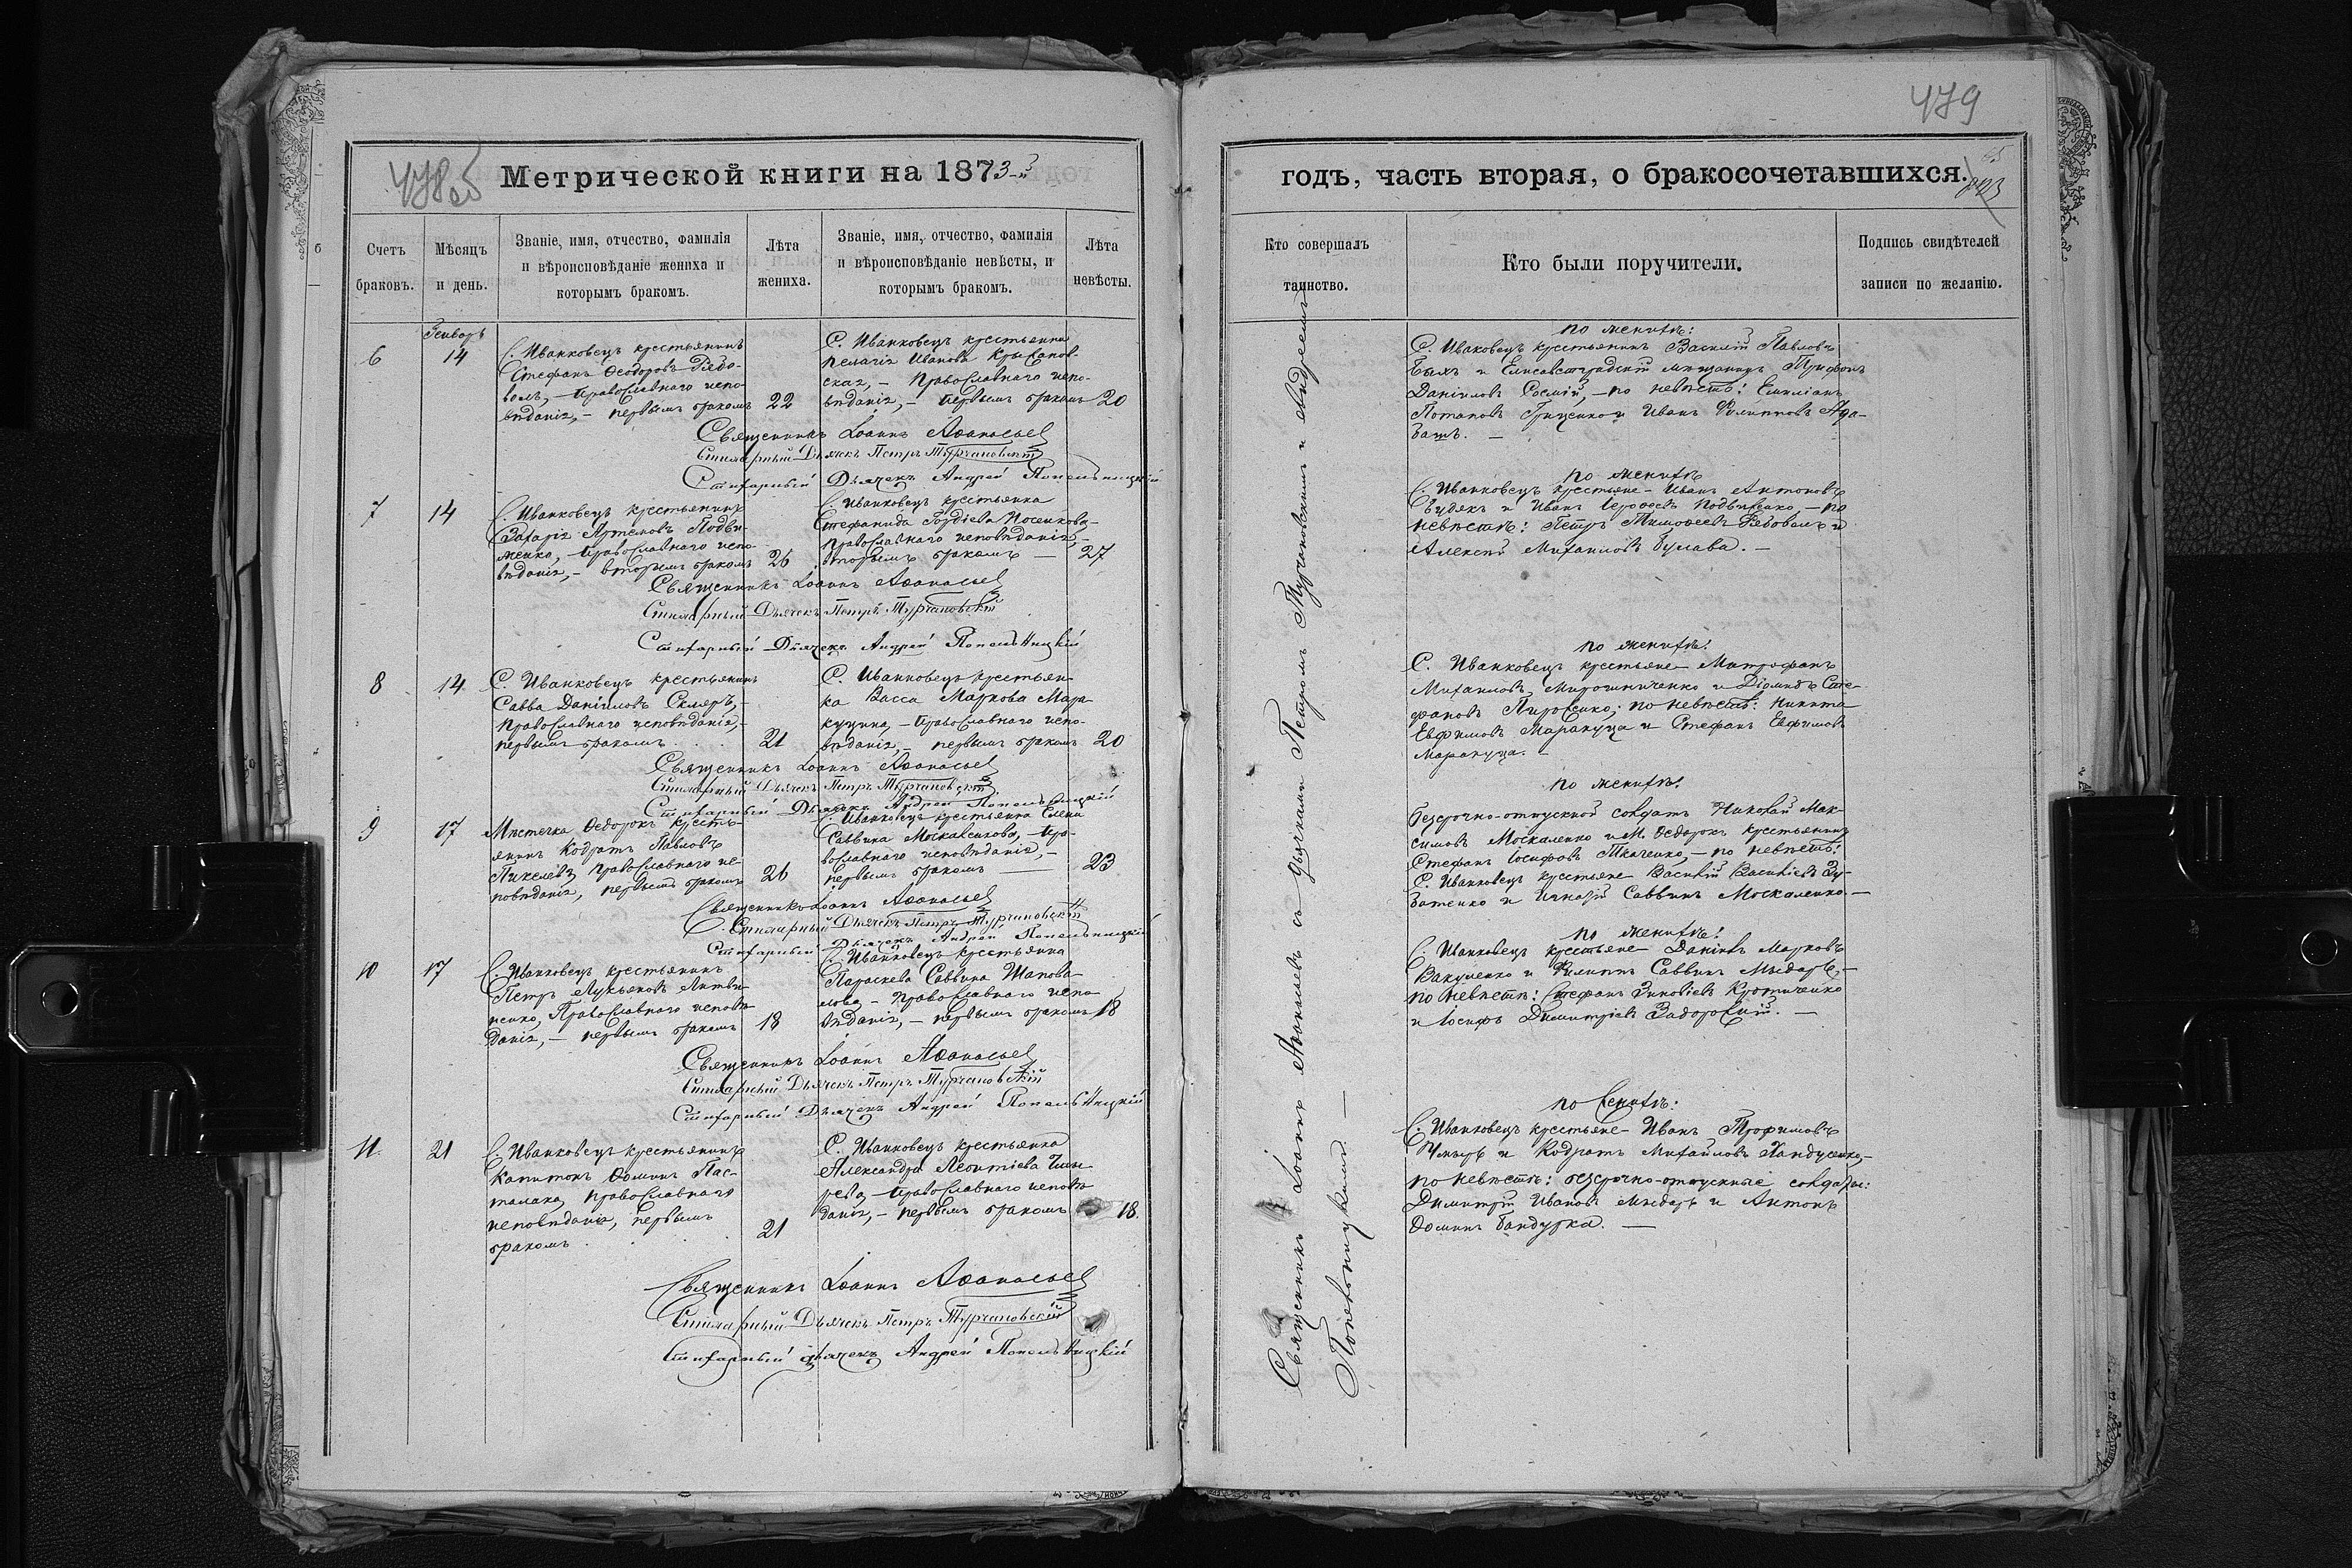 478об
Метрической книги на 1873-й
Счетъ браковъ.
Мѣсяцъ и день.
Званіе, имя, отчество, фамилія и вѣроисповѣданіе жениха и которымъ бракомъ.
Лѣта жениха.
Званіе, имя, отчество, фамилія и вѣроисповѣданіе невѣсты, и которымъ бракомъ.
Лѣта невѣсты.
6
Январь
14
С. Иванковецъ крестьянинъ
Стефанъ Ѳеодоровъ
православнаго испо-
вѣданія, – первымъ бракомъ
22
С. Иванковецъ крестьянка
Пелагія Иванова
ская, – православнаго испо-
вѣданія, – первымъ бракомъ
20
Священникъ Іоаннъ Аѳанасьев
Стихарный Дьячекъ Петръ Турчановскій
Стихарный Дьячекъ Андрей Попельницкій
7
14
С. Иванковецъ крестьянинъ
Захарія Артемовъ Подви-
женко, – православнаго испо-
вѣданія, – вторымъ бракомъ
26
С. Иванковецъ крестьянка
Стефанида Гордіева Носенкова,
православнаго исповѣданія, –
вторымъ бракомъ –
27
Священникъ Іоаннъ Аѳанасьев
Стихарный Дьячекъ Петръ Турчановскій
Стихарный Дьячекъ Андрей Попельницкій
8
14
С. Иванковецъ крестьянинъ
Савва Даніиловъ Скляръ, –
православнаго исповѣданія, –
первымъ бракомъ
21
С. Иванковецъ крестьян-
ка Васса Маркова Мара-
куцина, – православнаго испо-
вѣданія, – первымъ бракомъ
20
Священникъ Іоаннъ Аѳанасьев
Стихарный Дьячекъ Петръ Турчановскій
Стихарный Дьячекъ Андрей Попельницкій
9
17
Мѣстечка Ѳедорокъ кресть-
янинъ Кодратъ Павловъ
православнаго ис-
повѣданія, первымъ бракомъ
26
С. Иванковецъ крестьянка Елена
Саввина Москаленкова, – пра-
вославнаго исповѣданія, –
первымъ бракомъ –
23
Священникъ Іоаннъ Аѳанасьев
Стихарный Дьячекъ Петръ Турчановскій
Стихарный Дьячекъ Андрей Попельницкій
10
17
С. Иванковецъ крестьянинъ
Петръ Лукьяновъ Литви-
ненко, Православнаго исповѣ-
данія, – первымъ бракомъ
18
С. Иванковецъ крестьянка
Параскева Саввина Шапова-
лова, – православнаго испо-
вѣданія, – первымъ бракомъ
18
Священникъ Іоаннъ Аѳанасьев
Стихарный Дьячекъ Петръ Турчановскій
Стихарный Дьячекъ Андрей Попельницкій
11
21
С. Иванковецъ крестьянинъ
Капитонъ Ѳоминъ Пас-
талака, православнаго
исповѣданія, первымъ
бракомъ
21
С. Иванковецъ крестьянка
Александра Леонтіева
православнаго исповѣ-
данія, – первымъ бракомъ
18.
Священникъ Іоаннъ Аѳанасьев
Стихарный Дьячекъ Петръ Турчановскій
Стихарный Дьячекъ Андрей Попельницкій
479
годъ, часть вторая, о бракосочетавшихся.
Кто совершалъ таинство.
Кто были поручители.
Подпись свидѣтелей записи по желанію.
Священникъ Іоаннъ Аѳанасьевъ съ дьячками Петромъ Турчановскимъ и Андреемъ
Попельницкимъ. –
по женихѣ:
С. Иваковецъ крестьянинъ Василій Павловъ
Быкъ и Елисаветградскій мѣщанинъ Трифонъ
Даніиловъ – по невѣстѣ: Емиліанъ
Потаповъ Гриценко и Иванъ Филипповъ
по женихѣ
С. Иванковецъ крестьяне – Иванъ Антоновъ
и Иванъ Іероѳеевъ Подвиженко, – по
невѣстѣ: Петръ Тимоѳеевъ и
Алексѣй Михаиловъ Булава. –
по женихѣ:
С. Иванковецъ крестьяне – Митрофанъ
Михаиловъ Мирошниченко и Діомидъ Сте-
фановъ Пироженко; по невѣстѣ: Никита
Евфимовъ Маракуца и Стефанъ Евфимовъ
Маракуца. –
по женихѣ:
Безсрочно-отпускной солдатъ Николай Мак-
симовъ Москаленко и М. Ѳедорокъ крестьянинъ
Стефанъ Іосифовъ Ткаченко, – по невѣстѣ:
С. Иванковецъ крестьяне Василій Василіевъ Зу-
батенко и Игнатій Саввинъ Москаленко. –
по женихѣ:
С. Иванковецъ крестьяне – Даніилъ Марковъ
Вакуленко и Филиппъ Саввинъ –
по невѣстѣ: Стефанъ Зиновіевъ
и Іосифъ Димитріевъ Задорожній. –
по женихѣ:
С. Иванковецъ крестьяне – Иванъ Трофимовъ
и Кодратъ Михайловъ
по невѣстѣ: безсрочно-отпускные солдаты:
Димитрій Ивановъ и Антонъ
Ѳоминъ Бандурка. –